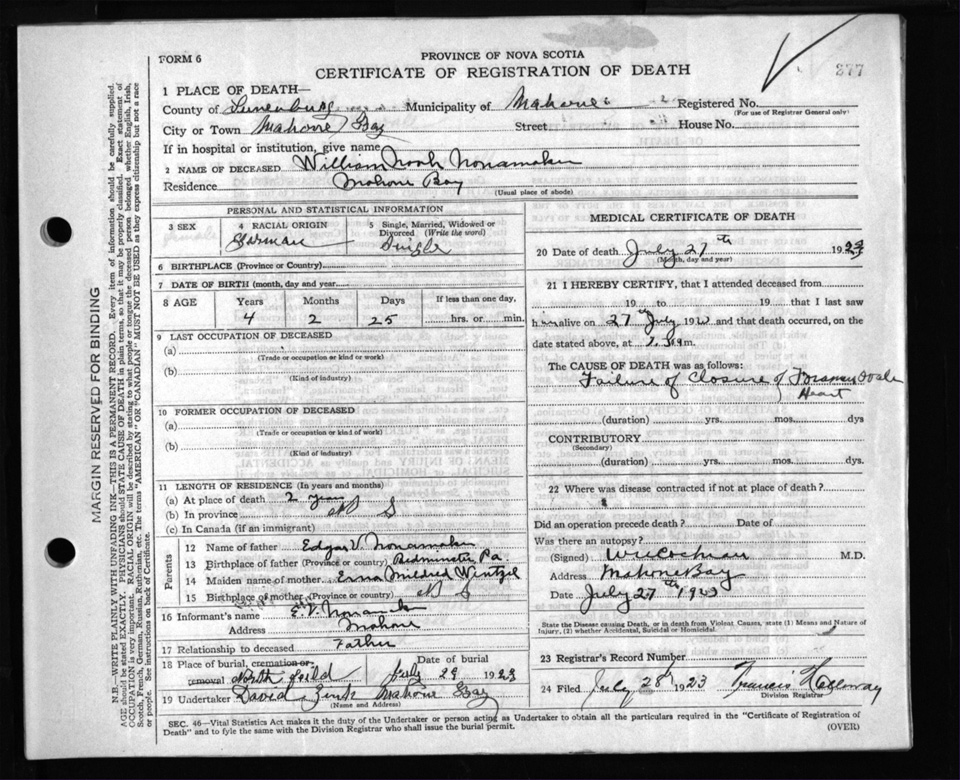 FORM 6
PROVINCE OF NOVA SCOTIA
CERTIFICATE OF REGISTRATION OF DEATH
377
1 PLACE OF DEATH—
County of Lunenburg Municipality of Mahone Registered No.
(For use of Registrar General only)
City or Town Mahone Bay Street House No.
If in hospital or institution, give name
2 NAME OF DECEASED William Noah Nonamaker
Residence Mahone Bay
(Usual place of abode)
PERSONAL AND STATISTICAL INFORMATION
3 SEX 4 RACIAL ORIGIN 5 Single, Married, Widowed or Divorced (Write the word)
German Single
6 BIRTHPLACE (Province or Country)
7 DATE OF BIRTH (month, day and year)
8 AGE Years Months Days If less than one day,
4 2 25 hrs. or min.
9 LAST OCCUPATION OF DECEASED
(a)
(Trade or occupation or kind of work)
(b)
(Kind of industry)
10 FORMER OCCUPATION OF DECEASED
(a)
(Trade or occupation or kind of work)
(b)
(Kind of industry)
11 LENGTH OF RESIDENCE (In years and months)
(a) At place of death 2 years
(b) In province N S
(c) In Canada (if an immigrant)
Parents
12 Name of father Edgar V. Nonamaker
13 Birthplace of father (Province or country) Bedminster Pa
14 Maiden name of mother Erma Mildred Wentzel
15 Birthplace of mother (Province or country) N S
16 Informant's name E. V. Nonamaker
Address Mahone
17 Relationship to deceased Father
18 Place of burial, cremation or removal Date of burial
North field July 29 1923
19 Undertaker David Zink Mahone Bay
(Name and Address)
MEDICAL CERTIFICATE OF DEATH
20 Date of death July 27th 1923
(Month, day and year)
21 I HEREBY CERTIFY, that I attended deceased from
19 to 19 that I last saw
him alive on 27th July 192 and that death occurred, on the
date stated above, at m.
The CAUSE OF DEATH was as follows:
Failure of closure of Foramen Ovale
Heart
(duration) yrs. mos. dys
CONTRIBUTORY
(Secondary)
(duration) yrs. mos. dys.
22 Where was disease contracted if not at place of death?
Did an operation precede death? Date of
Was there an autopsy?
(Signed) W Cochran M.D.
Address Mahone Bay
Date July 27th 192
State the Disease causing Death, or in death from Violent Causes, state (1) Means and Nature of
Injury, (2) whether Accidental, Suicidal or Homicidal.
23 Registrar's Record Number
24 Filed July 28th 1923 Francis Holloway
Division Registrar
SEC. 46—Vital Statistics Act makes it the duty of the Undertaker or person acting as Undertaker to obtain all the particulars required in the "Certificate of Registration of
Death" and to fyle the same with the Division Registrar who shall issue the burial permit.
(OVER)
MARGIN RESERVED FOR BINDING
N.B.—WRITE PLAINLY WITH UNFADING INK—THIS IS A PERMANENT RECORD. Every item of information should be carefully supplied.
AGE should be stated EXACTLY. PHYSICIANS should STATE CAUSE OF DEATH in plain terms, so that it may be properly classified. Exact statement of
OCCUPATION is very important. RACIAL ORIGIN will be described by stating to what people or tongue the deceased person belonged whether English, Irish,
Scotch, French, German, Russian, Ruthenian, etc. The terms "AMERICAN" OR "CANADIAN" MUST NOT BE USED as they express citizenship but not a race
or people. See instructions on back of Certificate.